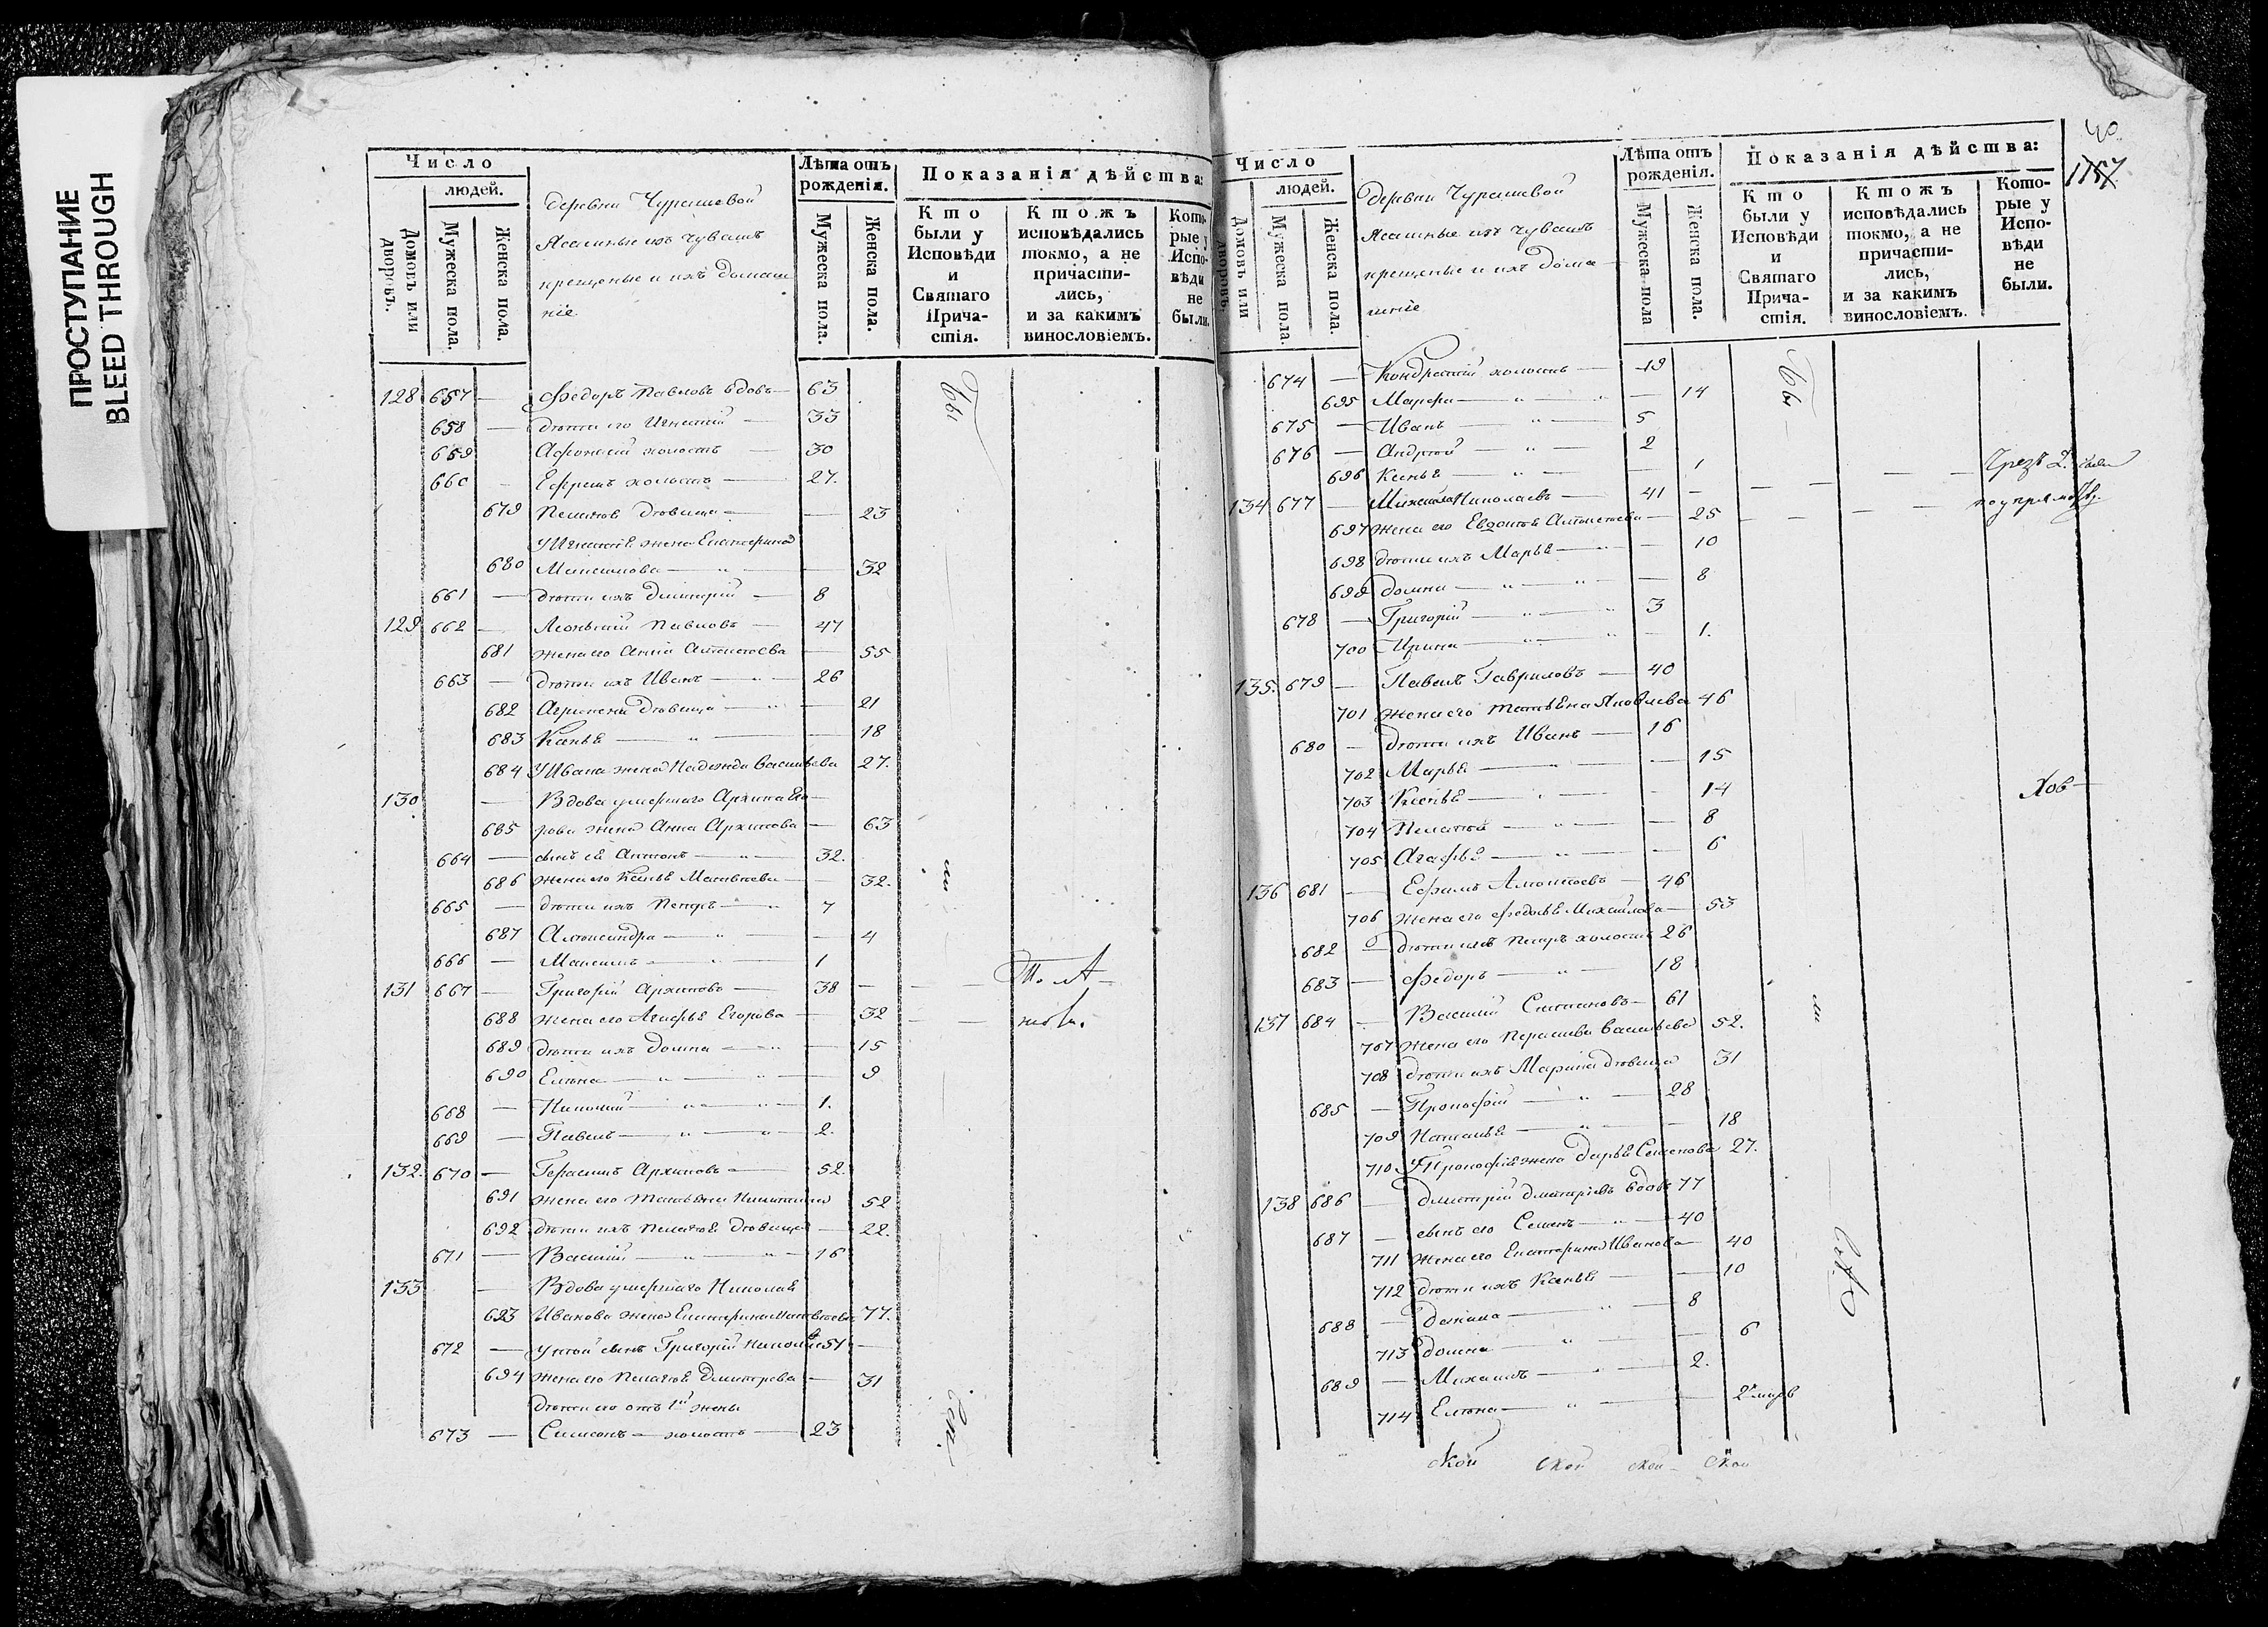 ПРОСТУПАНИЕ
BLEED THROUGH
Число
людей.
Домовъ или дворовъ.
Мужеска пола.
Женска пола.
деревни Чурашевой
Ясашные изъ чувашъ
крещеные и ихъ домаш
ніе
Лѣта отъ рожденія.
Мужеска пола.
Женска пола.
Показанія дѣйства:
Кто были у Исповѣди и Святаго Причастія.
Ктожъ исповѣдались токмо, а не причастились, и за какимъ винословіемъ.
Которые у Исповѣди не были.
128 657 — Федоръ Павловъ вдовъ — 63
658 — дѣти его Игнатій — 33
659 Афонасій холостъ — 30
660 Ефремъ холостъ — 27.
679 Пелагѣя дѣвица — 23
У Игнатія жена Екатерина
680 Максимова — 32
661 — дѣти ихъ Дмитрій — 8
129 662 — Леонтій Павловъ — 47
681 жена его Анна Алексѣева 55
663 — дѣти ихъ Иванъ — 26
682 Агрипена дѣвица — 21
683 Ксенья — 18
684 У Ивана жена Надежда Васильева 27.
130 — Вдова умершаго Архипа Его
685 рова жена Анна Архипова — 63
664 — сынъ ея Антонъ — 32.
686 жена его Ксенья Матвѣева — 32.
665 — дѣти ихъ Петръ — 7
687 Александра — 4
666 — Максимъ — 1
131 667 — Григорій Архиповъ — 38 —
688 жена его Агафья Егорова — 32
689 дѣти ихъ Домна — 15
690 Елена — 9
668 — Николай — 1.
669 — Павелъ — 2.
132. 670 — Герасимъ Архиповъ — 52.
691 жена его Татьяна Никитина 52
692 дѣти ихъ Пелагѣя дѣвица — 22.
671 — Василій — 16
133 — Вдова умершаго Николая
693 Иванова жена Екатерина Матвѣева 77.
672 — у ней сынъ Григорій Николаевъ 51 —
694 жена его Пелагѣя Дмитрева — 31
дѣти его отъ 1й жены
673 — Симеонъ — холостъ — 23
Бы
ли
Число
людей.
Домовъ или дворовъ.
Мужеска пола.
Женска пола.
деревни Чурашевой
Ясашные изъ чувашъ
крещеные и ихъ дома
шніе
Лѣта отъ рожденія.
Мужеска пола
Женска пола.
Показанія дѣйства:
Кто были у Исповѣди и Святаго Причастія.
Ктожъ исповѣдались токмо, а не причастились, и за какимъ винословіемъ.
Которые у Исповѣди не были.
40
674 — Кондратій холостъ — 19
695 Марфа — 14
675 — Иванъ — 5
676 — Андрей — 2
696 Ксенья — 1
134 677 — Михаила Николаевъ — 41 —
697 жена его Евдокія Алексѣева — 25
698 дѣти ихъ Марья — 10
699 Домна — 8
678 — Григорій — 3
700 Ирина — 1.
135. 679 — Павелъ Гавриловъ — 40
701 жена его Татьяна Яковлева 46
680 — дѣти ихъ Иванъ — 16
702 Марья — 15
703 Ксенья — 14
704 Пелагѣя — 8
705 Агафья — 6
136 681 — Ефимъ — 46
706 жена его Федосья Михайлова — 53
682 — дѣти ихъ Петръ холостъ 26
683 — Федоръ — 18
137 684 — Василій Степановъ — 61
707 жена его Параскева Васильева 52.
708 дѣти ихъ Марина дѣвица 31
685 — Прокофій — 28
709 Наталья — 18
710 У Прокофія жена Дарья Семенова 27.
138 686 — Дмитрій Дмитріевъ вдовъ 77
687 — сынъ его Семенъ — 40
711 жена его Екатерина Иванова — 40
712 дѣти ихъ Ксенья — 10
688 — Данила — 8
713 Домна — 6
689 — Михаилъ — 2.
714 Елена —
Бы
ли
ской ской ской ской